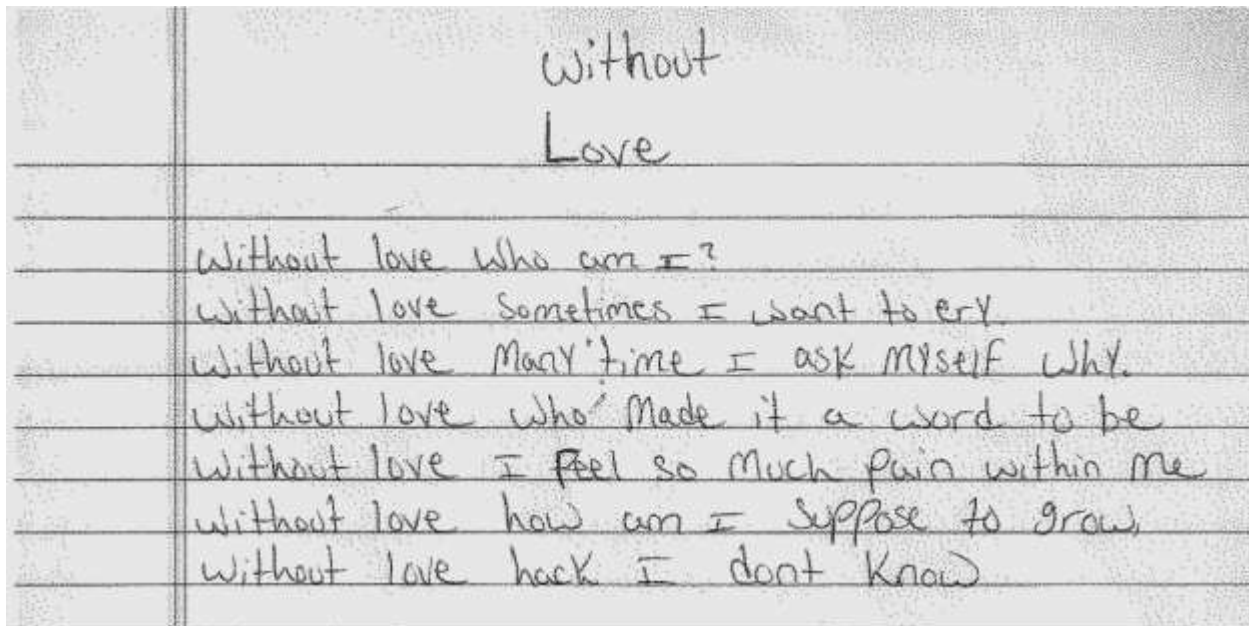 without
Love
without love who am I?
without love sometimes I want to cry.
without love many time I ask myself why.
without love who made it a word to be
without love I feel so much pain within me
without love how am I suppose to grow,
without love hack I dont know